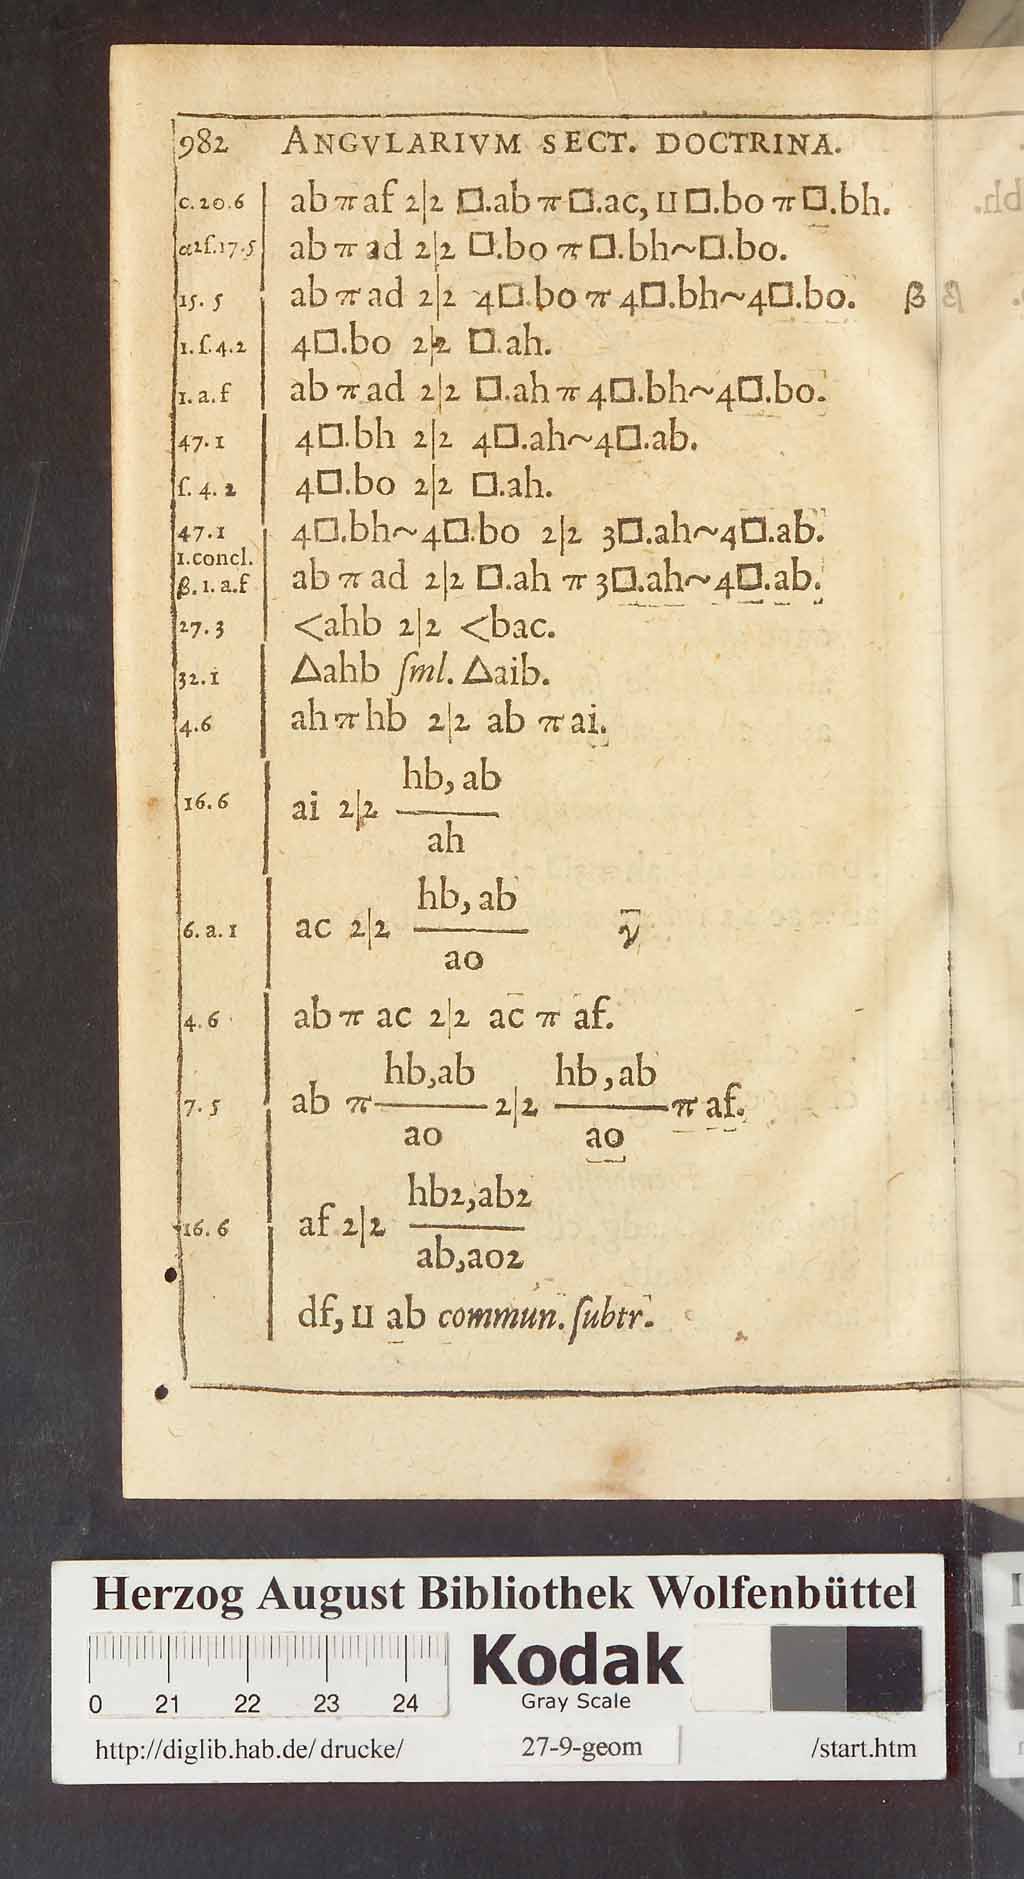 982 ANGVLARIVM SECT. DOCTRINA.
c.20.6 ab π af 2|2 □.ab π □.ac, II □.bo π □.bh.
α2ſ.17.5 ab π ad 2|2 □.bo π □.bh~□.bo.
15.5 ab π ad 2|2 4□.bo π 4□.bh~4□.bo. β
1.ſ.4.2 4□.bo 2|2 □.ah.
1.a.f ab π ad 2|2 □.ah π 4□.bh~4□.bo.
47.1 4□.bh 2|2 4□.ah~4□.ab.
ſ.4.2 4□.bo 2|2 □.ah.
47.1 4□.bh~4□.bo 2|2 3□.ah~4□.ab.
1.concl.
β.1.a.f ab π ad 2|2 □.ah π 3□.ah~4□.ab.
27.3 <ahb 2|2 <bac.
32.1 △ahb ſml. △aib.
4.6 ah π hb 2|2 ab π ai.
hb, ab
16.6 ai 2|2
ah
hb, ab
6.a.1 ac 2|2 γ̄
ao
4.6 ab π ac 2|2 ac π af.
hb,ab hb,ab
7.5 ab π 2|2 π af.
ao ao
hb2,ab2
16.6 af 2|2
ab,ao2
df, II ab commun. ſubtr.
Herzog August Bibliothek Wolfenbüttel
Kodak
Gray Scale
0 21 22 23 24
http://diglib.hab.de/drucke/ 27-9-geom /start.htm